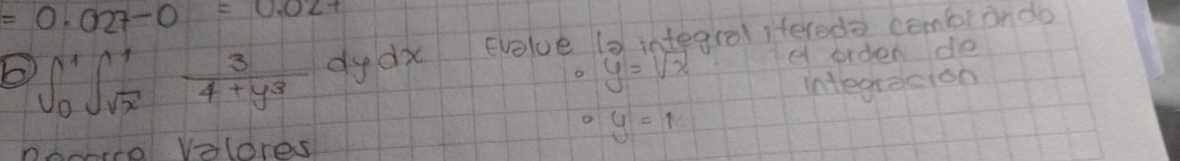 = 0.027-0 = 0.027
b) ∫₀¹ ∫√x¹ 3/(4+y³) dydx Evalue la integral iterada cambiando
• y = √x el orden de
integracion
• y = 1
valores